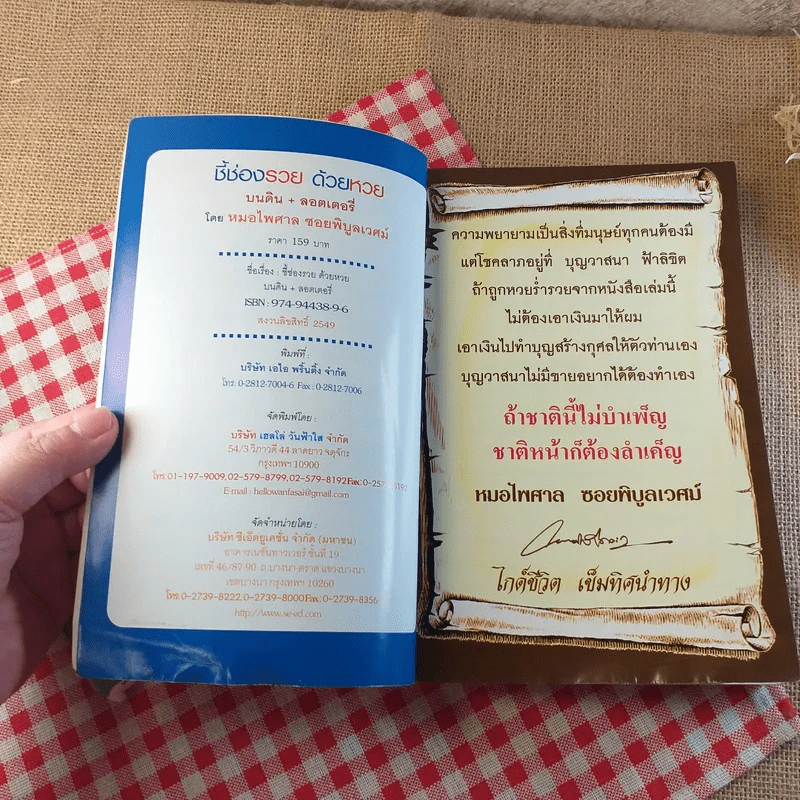 ชี้ช่องรวย ด้วยหวย
บนดิน + ลอตเตอรี่
โดย หมอไพศาล ซอยพิบูลเวศม์
ราคา 159 บาท
ชื่อเรื่อง : ชี้ช่องรวย ด้วยหวย
บนดิน + ลอตเตอรี่
ISBN : 974-94438-9-6
สงวนลิขสิทธิ์ 2549
พิมพ์ที่ :
บริษัท เอไอ พริ้นติ้ง จำกัด
โทร. 0-2812-7004-6 Fax : 0-2812-7006
จัดพิมพ์โดย :
บริษัท เฮลโล่ วันฟ้าใส จำกัด
54/3 วิภาวดี 44 ลาดยาว จตุจักร
กรุงเทพฯ 10900
โทร.01-197-9009,02-579-8799,02-579-8192 Fax:
E-mail : hellowanfasai@gmail.com
จัดจำหน่ายโดย :
บริษัท ซีเอ็ดยูเคชั่น จำกัด (มหาชน)
อาคารเนชั่นทาวเวอร์ ชั้นที่ 19
เลขที่ 46/87-90 ถ.บางนา-ตราด แขวงบางนา
เขตบางนา กรุงเทพฯ 10260
โทร. 0-2739-8222,0-2739-8000 Fax: 0-2739-8356
http://www.se-ed.com
ความพยายามเป็นสิ่งที่มนุษย์ทุกคนต้องมี
แต่โชคลาภอยู่ที่ บุญวาสนา ฟ้าลิขิต
ถ้าถูกหวยร่ำรวยจากหนังสือเล่มนี้
ไม่ต้องเอาเงินมาให้ผม
เอาเงินไปทำบุญสร้างกุศลให้ตัวท่านเอง
บุญวาสนาไม่มีขายอยากได้ต้องทำเอง
ถ้าชาตินี้ไม่บำเพ็ญ
ชาติหน้าก็ต้องลำเค็ญ
หมอไพศาล ซอยพิบูลเวศม์
ไกด์ชีวิต เข็มทิศนำทาง